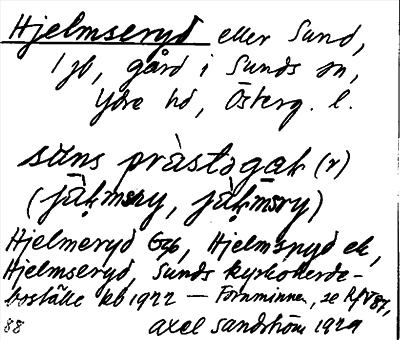 Hjelmseryd eller Sund,
1 jb, gård i Sunds sn,
Ydre hd, Österg. l.
sŭns prästəgaḷ (r)
(jæ̀ḷmsry, jæ̀ḷmsry)
Hjelmeryd Gsb, Hjelmspyd ek,
Hjelmseryd, Sunds kyrkoherde-
boställe kb 1922 — Fornminnen, se RfV87,
88 Axel Sandström 1929